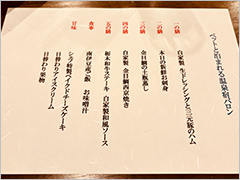 ペットと泊まれる温泉宿バロン
一の膳　自家製　生ドレッシングと三元豚のハム
二の膳　本日の新鮮お刺身
三の膳　金目鯛の土瓶蒸し
四の膳　自家製　金目鯛西京焼き
五の膳　栃木和牛ステーキ　自家製和風ソース
食事　南伊豆産ご飯　お味噌汁
甘味　シェフ特製ベイクドチーズケーキ
日替わりアイスクリーム
日替わり果物